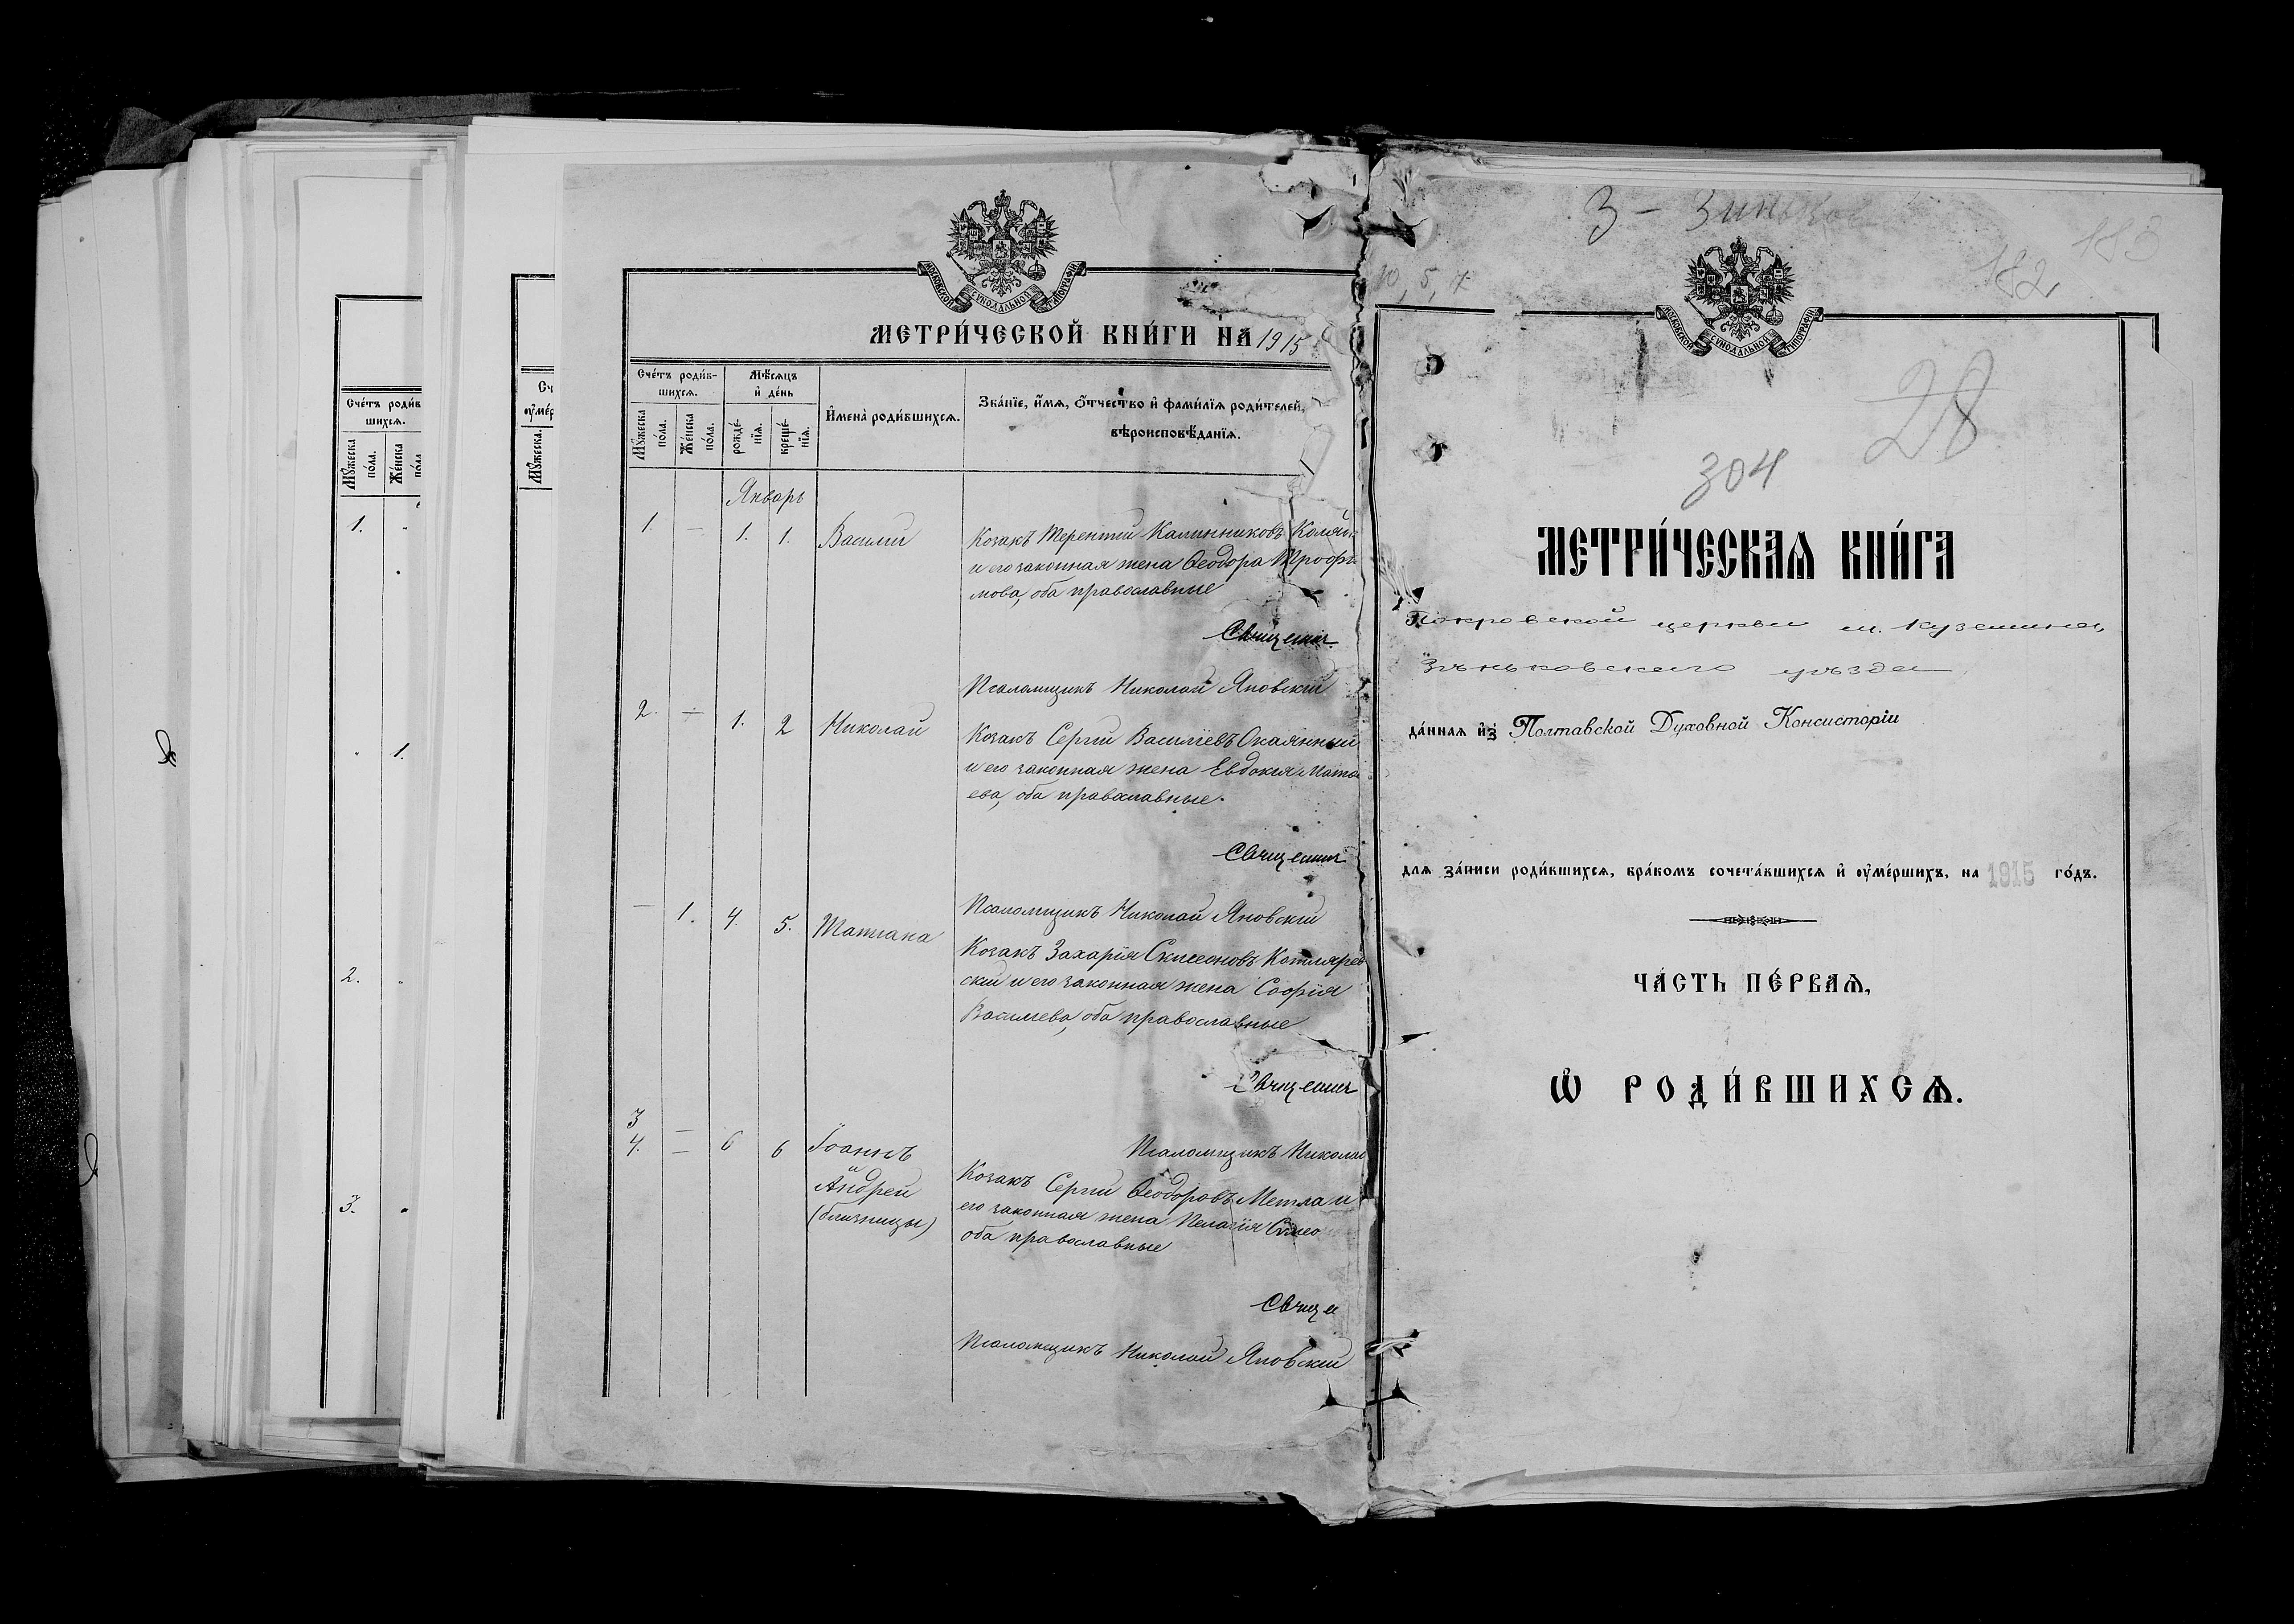 Счéтъ роди́в
шихсѧ.
Мꙋ́жеска
по́ла.
Же́нска
1.
1.
2.
3.
Мꙋ́жеска.
МОСКОВСКОЙ СѴНОДАЛЬНОЙ ТИПОГРАФІИ
МЕТРИ́ЧЕСКОЙ КНИ́ГИ НА 1915
Счéтъ роди́в-
шихсѧ.
Мѣ́сѧцъ
и҆ де́нь
И҆мена̀ роди́вшихсѧ.
Зва́нїе, и҆́мѧ, ѻ҆́тчество и҆ фами́лїѧ роди́телей,
вѣроисповѣ́данїѧ.
Мꙋ́жеска
по́ла.
Же́нска
по́ла.
рожде́-
нїѧ.
креще́-
нїѧ.
Январь
1. — 1. 1. Василій
Козакъ Терентій Калинниковъ
и его законная жена Ѳеодора Трофи
мова, оба православные
Священник
Псаломщикъ Николай Яновскій
2. — 1. 2 Николай
Козакъ Сергій Васильевъ Окаянный
и его законная жена Евдокія Матѳ
ева, оба православные.
Священник
Псаломщикъ Николай Яновскій
— 1. 4. 5. Татіана
Козакъ Захарія Симеоновъ Котлярев
скій и его законная жена Софія
Васильева, оба православные
Священник
3 —
4. — 6 6 Іоаннъ
и
Андрей
(близнецы)
Псаломщикъ Никола
Козакъ Сергій Ѳеодоровъ Метла и
его законная жена Пелагія Симео
оба православные
Свяще
Псаломщикъ Николай Яновскій
З - Зиньков
182
183
10, 5, 7
МОСКОВСКОЙ СѴНОДАЛЬНОЙ ТИПОГРАФІИ
28
304
МЕТРИ́ЧЕСКАѦ КНИ́ГА
Покровской церкви м. Куземина,
Зѣньковскаго уѣзда
да́ннаѧ и҆з̾ Полтавской Духовной Консисторіи
длѧ за́писи роди́вшихсѧ, бра́комъ сочета́вшихсѧ и҆ ᲂу҆ме́ршихъ, на 1915 го́дъ.
ЧА́СТЬ ПЕ́РВАѦ,
Ѡ҆ РОДИ́ВШИХСѦ.